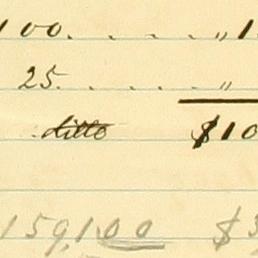 100. . . . . „ 1
25. . . . . „
ditto $10
159,100 $3